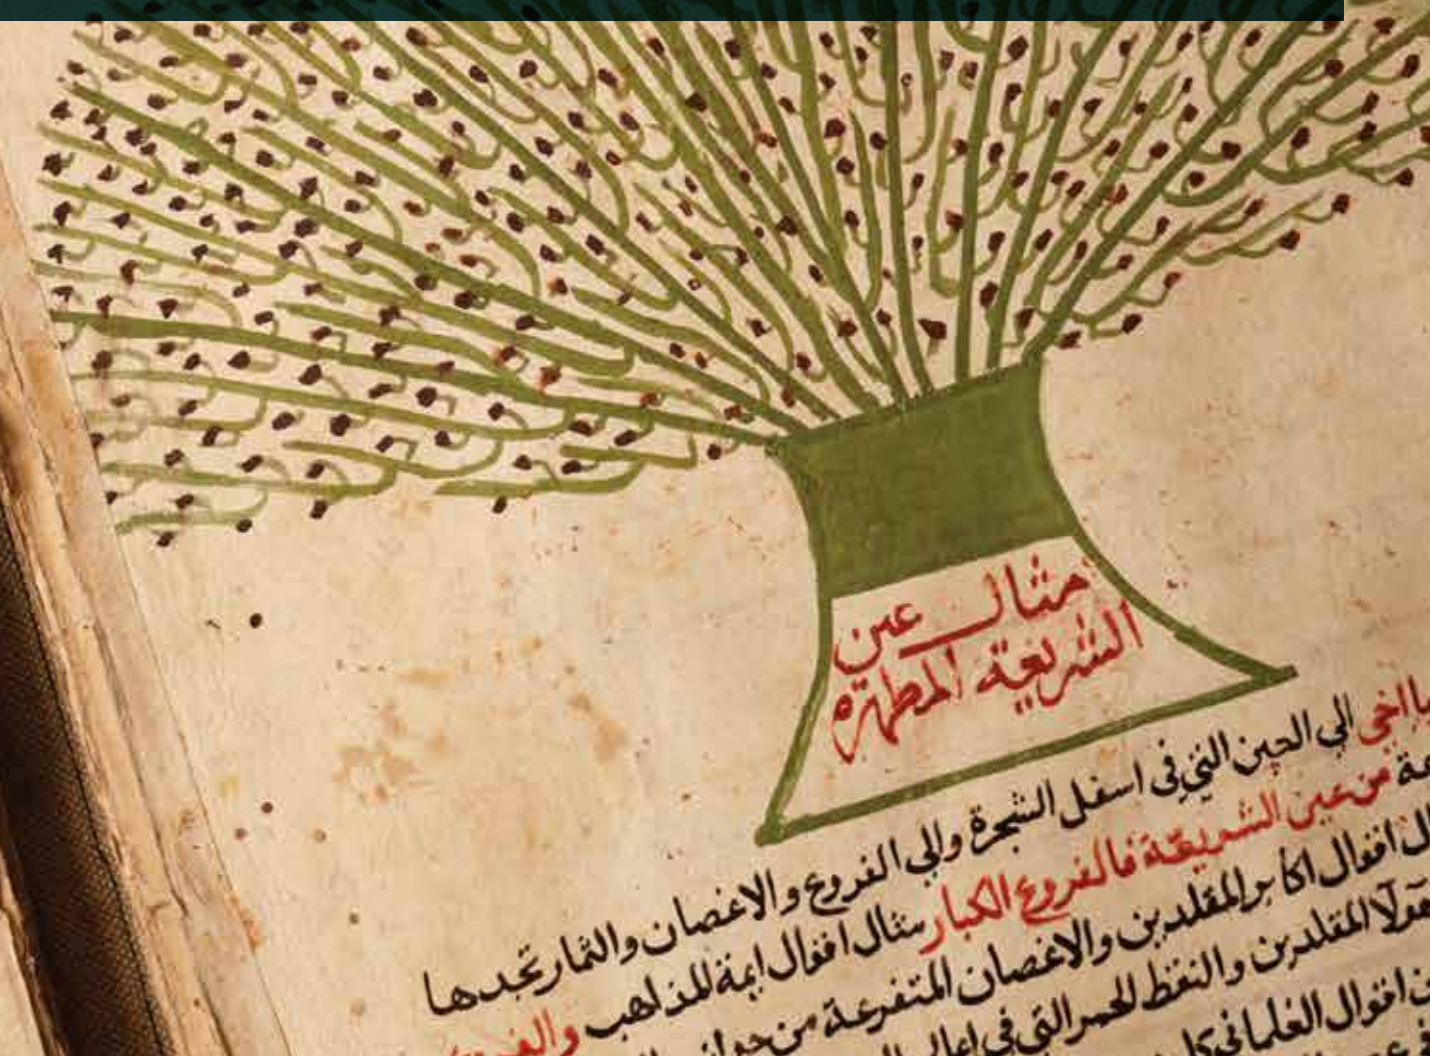 مثال عين
الشريعة المطهرة
يا اخى الي العين التي فى اسفل الشجرة والي الفروع والاغصان والثمار تجدها
من عين الشريعة فالفروع الكبار مثال اقوال ايمة المذاهب
اقوال اكابر المقلدين والاغصان المتفرعة من
المقلدين والنقط الحمر التي في اعالي
اقوال العلما